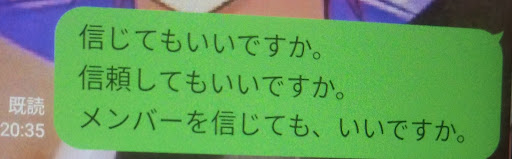 信じてもいいですか。
信頼してもいいですか。
メンバーを信じても、いいですか。
既読
20:35